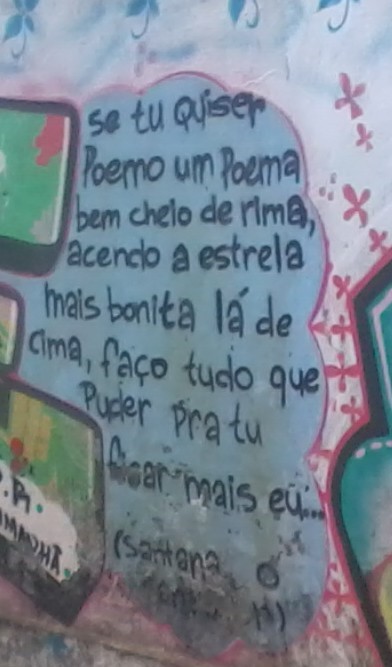 se tu quiser
Poemo um Poema
bem cheio de rima,
acendo a estrela
mais bonita lá de
cima, faço tudo que
Puder pra tu
ficar mais eu...
(Santana O